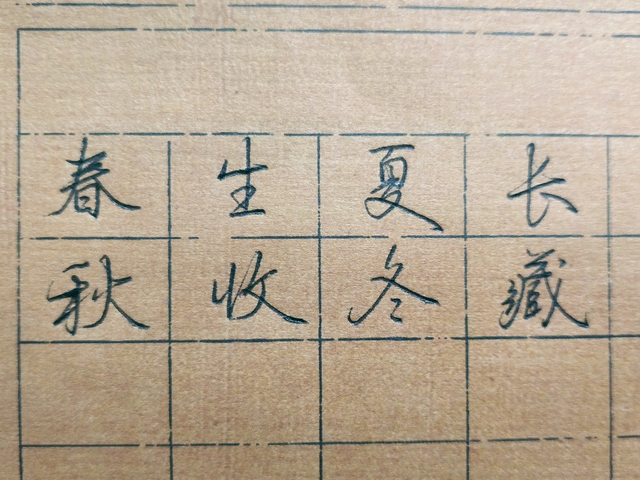 春生夏长
秋收冬藏